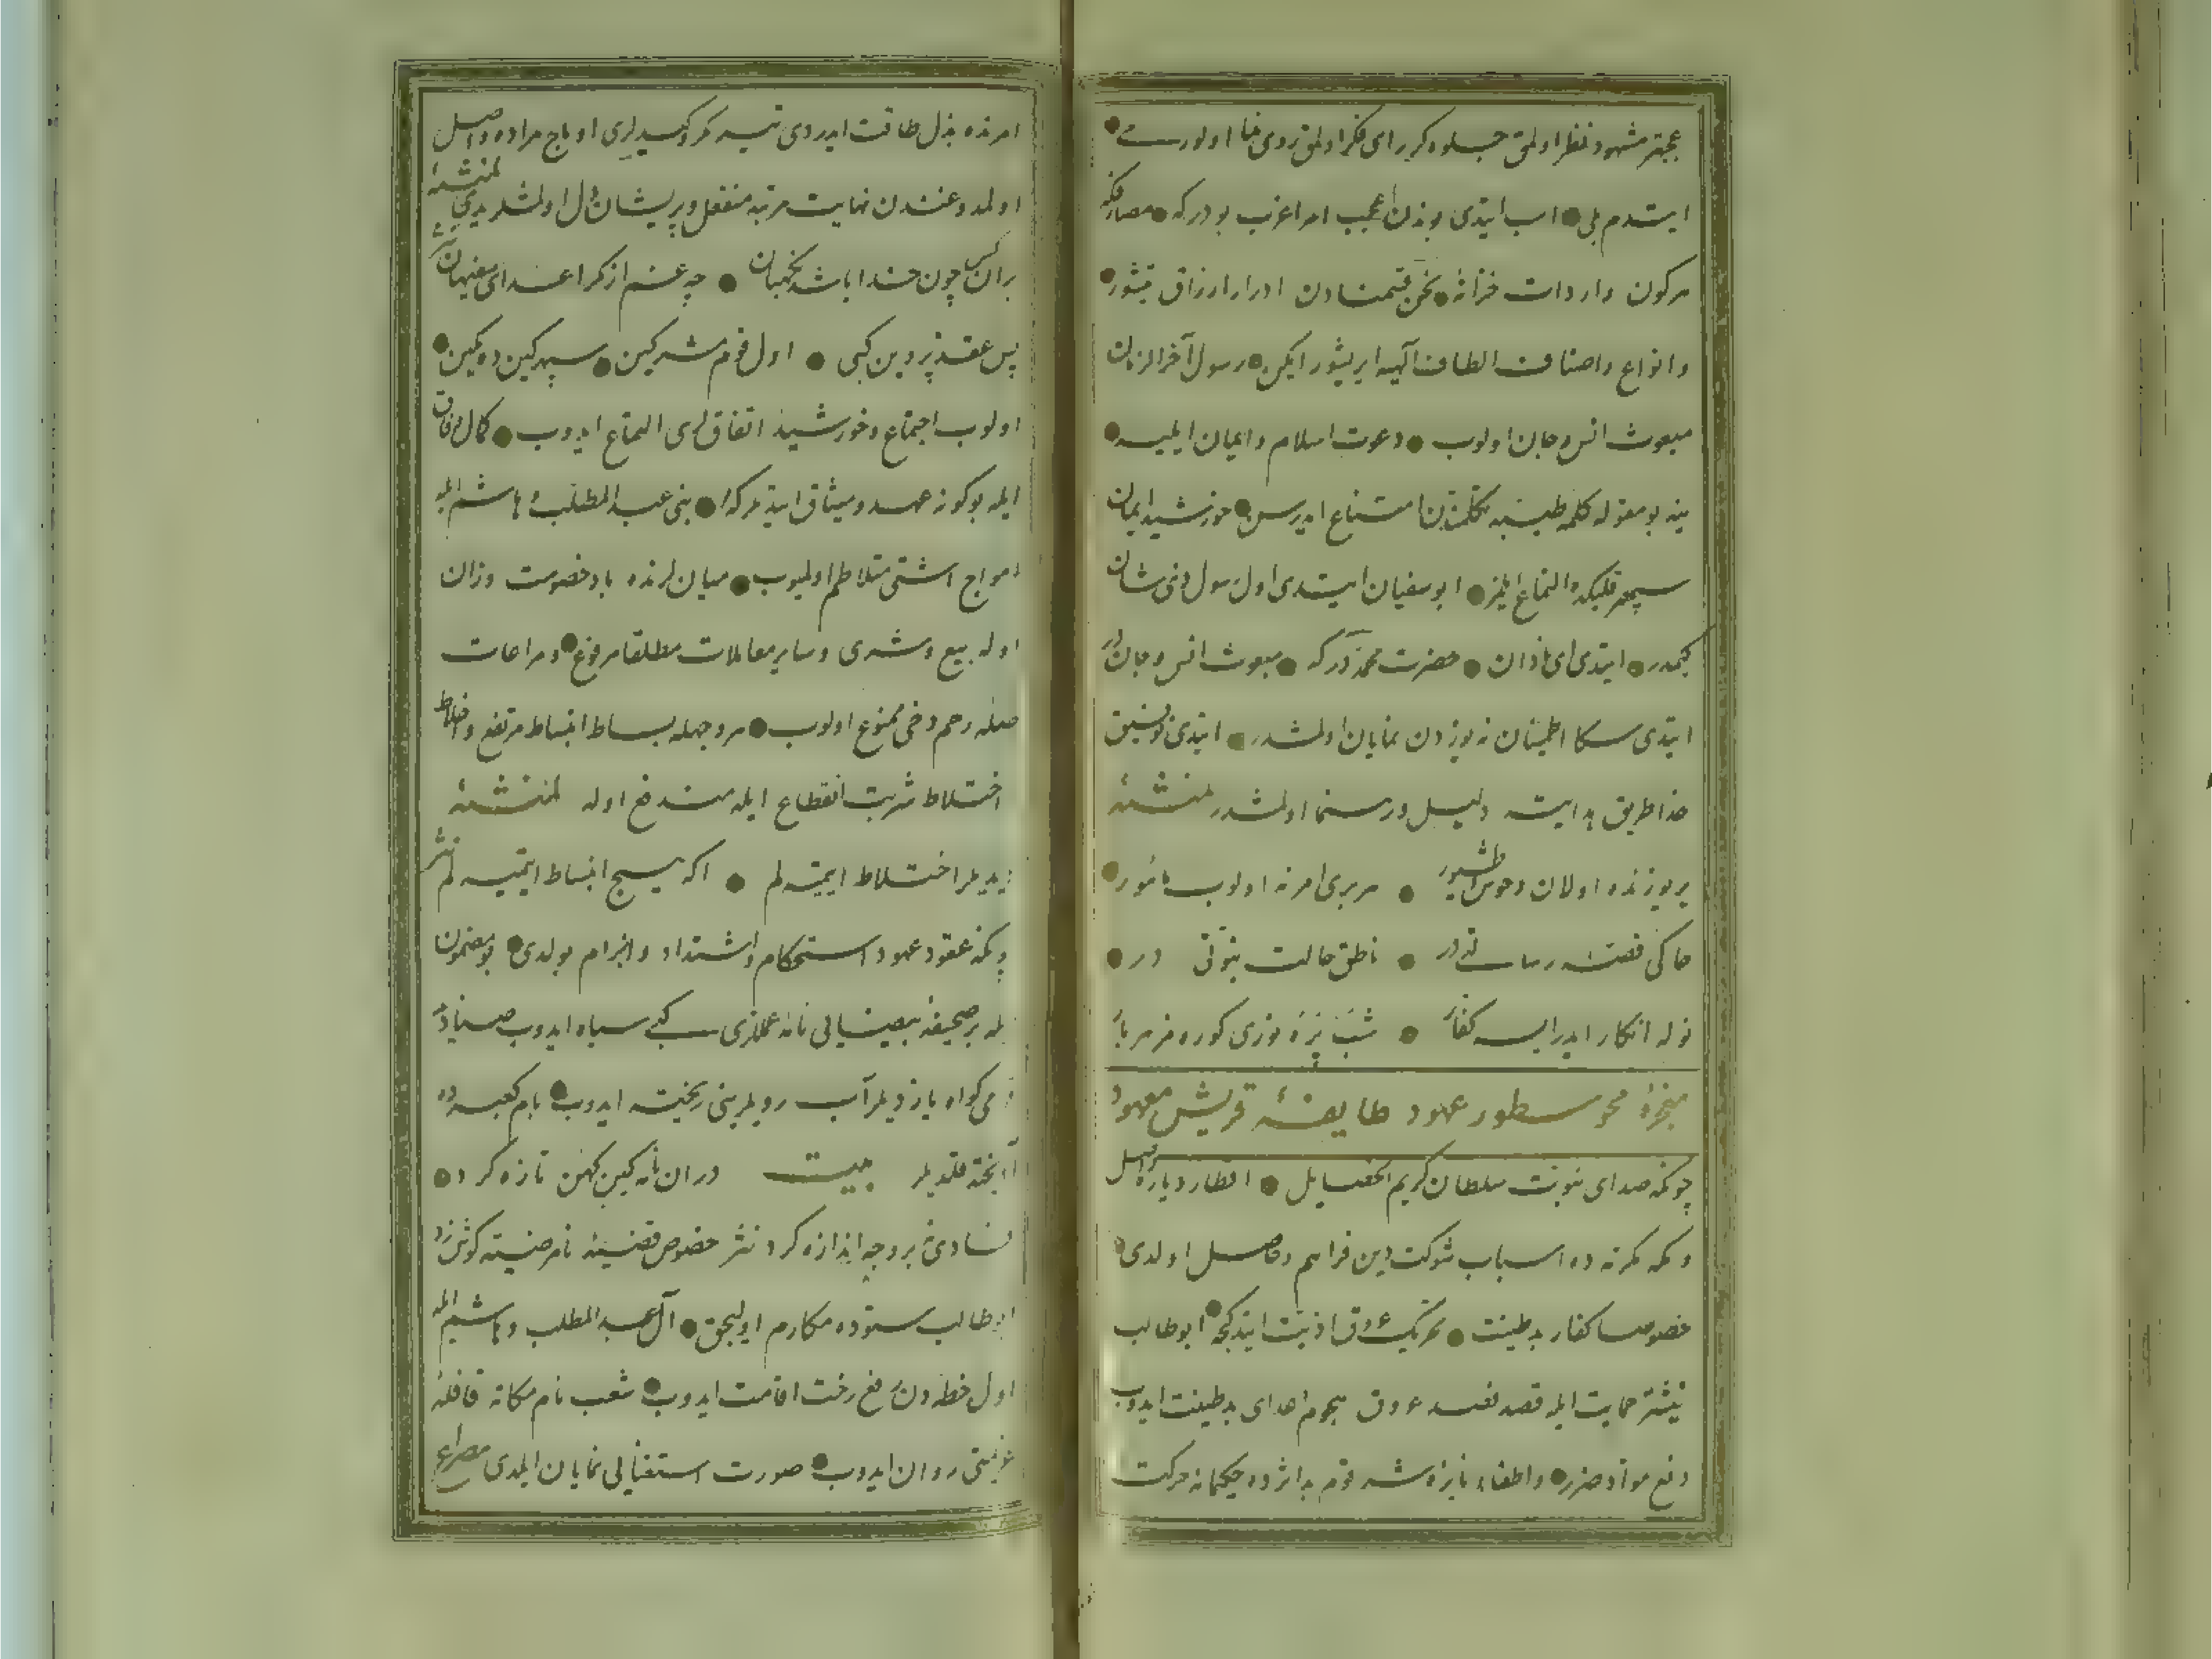 مشهود نظر اولمق جلوه کر رای فکر اولمق روی نما اولور
ایتدم بلی اسب ایتدی بوندن اعجب امر اغرب بودر که
هرکون واردات خزانهٔ نحن قسمنا دن ادرار ارزاق یتشور
وانواع واصناف الطاف الهیه ایریشور ایکن رسول آخر الزمان
مبعوث انس وجان اولوب دعوت اسلام وایمان ایلیه
ینه بو مقوله کلمهٔ طیبه تکلمندن امتناع ایدرسن خورشید ایمان
سپهر قلبکده التماع ایلمز ابوسفیان ایتدی اول رسول ذی شان
کیمدر ایتدی ای نادان حضرت محمددر که مبعوث انس وجاندر
ایتدی سکا اطمینان نه یوزدن نمایان اولمشدر ایتدی توفیق
خدا طریق هدایته دلیل ورهنما اولمشدر لمنشئه
بر یوزنده اولان وحوش وطیور هر بری امرنه اولوب مأمور
حاکی قصهٔ رسالتدر ناطق حالت نبوتی در
نوله انکار ایدرایسه کفار شب پره نوری کوره مز هر بار
معجزهٔ محو سطور عهود طایفهٔ قریش معهود
چونکه صدای نبوت سلطان کریم الخصایل اقطار ودیاره واصل
ومکهٔ مکرمه ده اسباب شوکت دین فراهم وحاصل اولدی
خصوصا کفار بدطینت تحریک عروق اذیت ایتدکجه ابوطالب
نیشتر حمایت ایله قصد فصد عروق هجوم اعدای بدطینت ایدوب
دفع مواد ضرر واطفاء نایرهٔ شر قوم بداثرده حکیمانه حرکت
امرنده بذل طاقت ایدردی تیر مکر وکیدلری اوماج مراده واصل
اولمدوغندن نهایت مرتبه منفعل وپریشان دل اولمشلریدی لمنشئه
بران کس چون خدا باشد نکهبان چه غم از مکر اعدای
پس عقد پروین کبی اول قوم مشرکین سپهر کین ده مکین
اولوب اجتماع وخورشید اتفاقلری التماع ایدوب کمال وفاق
ایله بو کونه عهد ومیثاق ایتدیلر که بنی عبد المطلب وهاشم ایله
امواج آشتی متلاطم اولمیوب میانلرنده باد خصومت وزان
اوله بیع وشری وسایر معاملات مطلقا مرفوع ومراعات
صلهٔ رحم دخی ممنوع اولوب هر وجهله بساط انبساط مرتفع
اختلاط شربت انقطاع ایله مندفع اوله لمنشئه
دیدیلر اختلاط ایتمیه لم اکه هیچ انبساط ایتمیه لم نثر
چونکه عقود عهود استحکام واشتداد وانبرام بولدی بو مضمون
ایله بر صحیفهٔ بیضایی نامهٔ عمللری کبی سیاه ایدوب صنادید
کواه یازدیلر آب رویلرینی ریخته ایدوب بام کعبه ده
آویخته قلدیلر بیت دران نامه کین کهن تازه کرد
فسادی بر وجه اندازه کرد نثر خصوص قضیهٔ نامرضیه کوشزد
ابوطالب ستوده مکارم اولیجق آل عبد المطلب وهاشم ایله
اول خطه دن رفع رخت اقامت ایدوب شعب نام مکانه قافلهٔ
عزیمتی روان ایدوب صورت استغنایی نمایان ایلدی مصراع